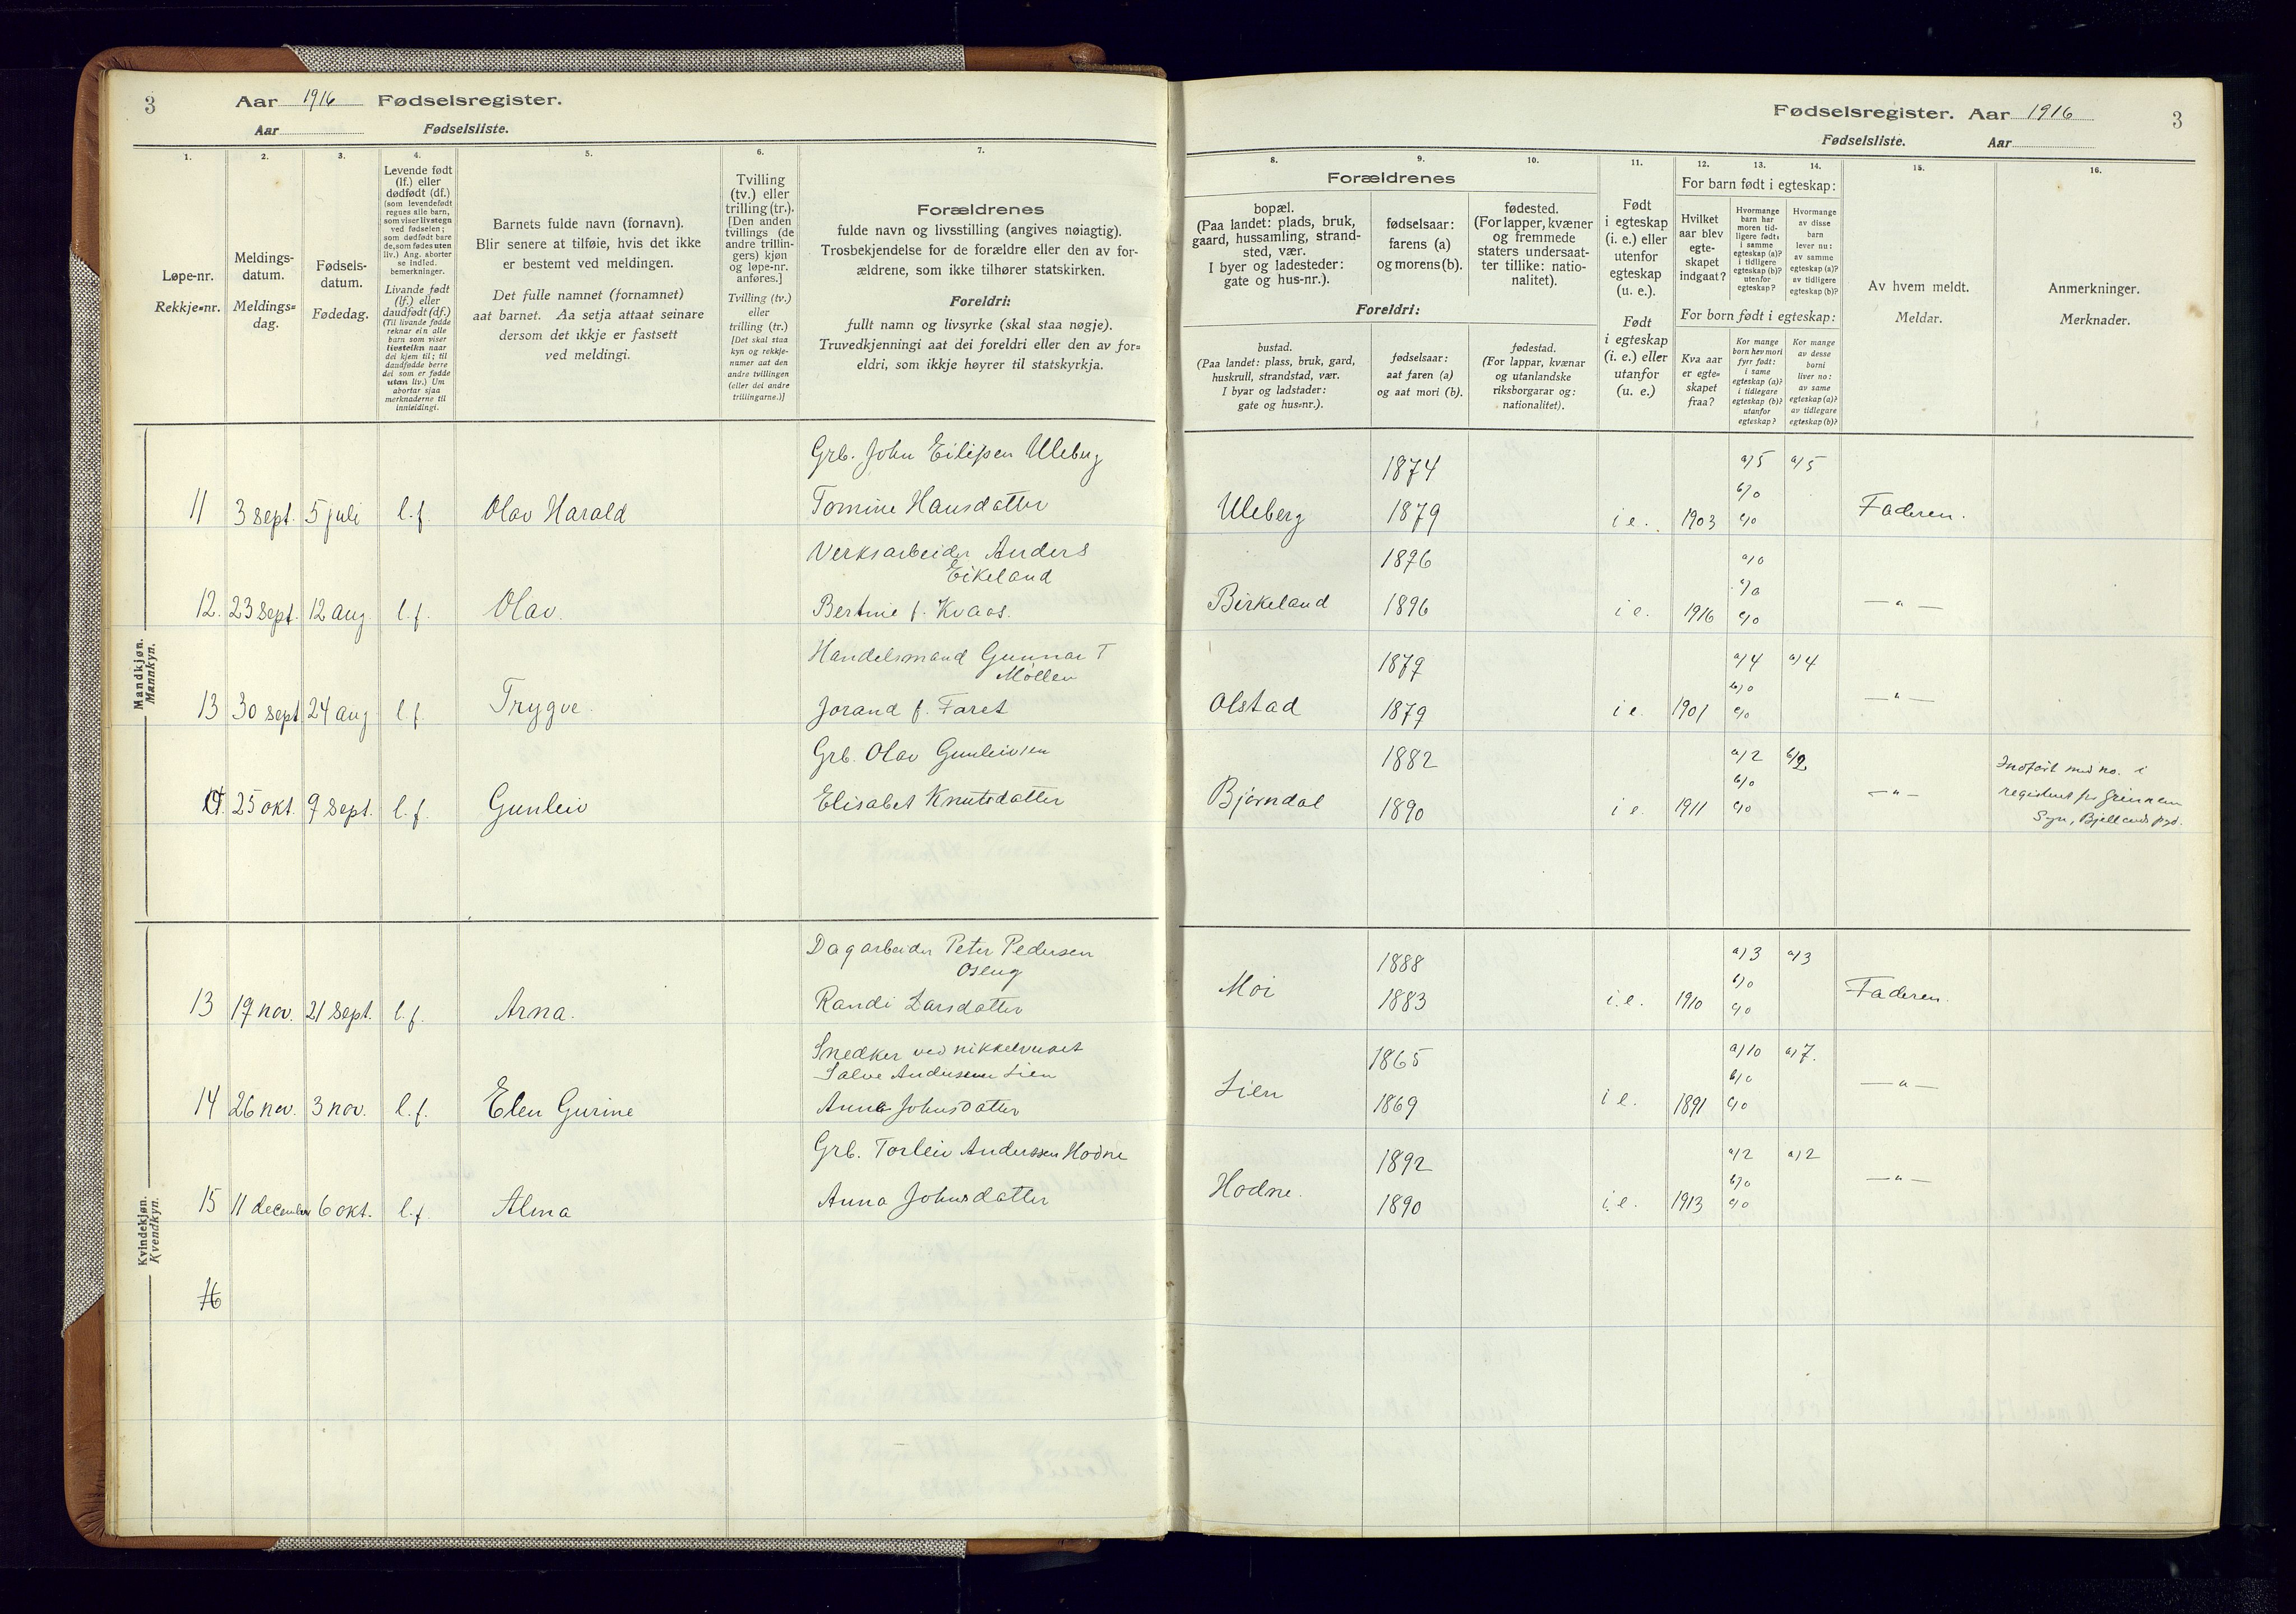 3
Aar 1916 Fødselsregister.
Aar Fødselsliste.
1.
2.
3.
4.
5.
6.
7.
Løpe-nr.
Rekkje=nr.
Meldings-
datum.
Meldings=
dag.
Fødsels-
datum.
Fødedag.
Levende født
(lf.) eller
dødfødt (df.)
(som levendefødt
regnes alle barn,
som viser livstegn
ved fødselen;
som dødfødt bare
de, som fødes uten
liv.) Ang. aborter
se indled.
bemerkninger.
Livande født
(lf.) eller
daudfødt (df.)
(Til livande fødde
reknar ein alle
barn som viser
livsteikn naar
dei kjem til; til
daudfødde berre
dei som er fødde
utan liv.) Um
abortar sjaa
merknaderne til
innleidingi.
Barnets fulde navn (fornavn).
Blir senere at tilføie, hvis det ikke
er bestemt ved meldingen.
Det fulle namnet (fornamnet)
aat barnet. Aa setja attaat seinare
dersom det ikkje er fastsett
ved meldingi.
Tvilling
(tv.) eller
trilling (tr.).
[Den anden
tvillings (de
andre trillin-
gers) kjøn
og løpe-nr.
anføres.]
Tvilling (tv.)
eller
trilling (tr.)
[Det skal staa
kyn og rekkje-
numer aat den
andre tvillingen
(eller dei andre
trillingarne.)]
Forældrenes
fulde navn og livsstilling (angives nøiagtig).
Trosbekjendelse for de forældre eller den av for-
ældrene, som ikke tilhører statskirken.
Foreldri:
fullt namn og livsyrke (skal staa nøgje).
Truvedkjenningi aat dei foreldri eller den av for=
eldri, som ikkje høyrer til statskyrkja.
Mandkjøn.
Mannkyn.
Grb. John Eilefsen Uleberg
11 3 sept. 5 juli l. f. Olav Harald Tomine Hansdatter
Verksarbeider Anders
Eikeland
12. 23 sept. 12 aug. l. f. Olav. Bertine f. Kvaas.
Handelsmand Gunnar T
Mollen
13 30 sept 24 aug l. f. Trygve. Jorand f. Faret
Grb. Olav Gunleivsen
25 okt. 9 sept. l. f. Gunleiv Elisabet Knutsdatter
Kvindekjøn.
Kvendkyn.
Dagarbeider Peter Pedersen
Oseng
13 19 nov. 21 sept. l. f. Arna. Randi Larsdatter
Snedker ved nikkelverket
Salve Andersen Lien
14 26 nov. 3 nov. l. f. Elen Gurine Anna Johnsdatter
Grb. Torleiv Anderssen Hodne
15 11 december 6 okt. l. f. Alma Anna Johnsdatter
16
Fødselsregister. Aar 1916
3
Fødselsliste. Aar
8.
9.
10.
11.
12.
13.
14.
15.
16.
Forældrenes
bopæl.
(Paa landet: plads, bruk,
gaard, hussamling, strand-
sted, vær.
I byer og ladesteder:
gate og hus-nr.).
fødselsaar:
farens (a)
og morens (b).
fødested.
(For lapper, kvæner
og fremmede
staters undersaat-
ter tillike: natio-
nalitet).
Foreldri:
bustad.
(Paa landet: plass, bruk, gard,
huskrull, strandstad, vær.
I byar og ladstader:
gate og hus=nr.).
fødselsaar:
aat faren (a)
og aat mori (b).
fødestad.
(For lappar, kvænar
og utanlandske
riksborgarar og:
nationalitet).
Født
i egteskap
(i. e.) eller
utenfor
egteskap
(u. e.).
Født
i egteskap
(i. e.) eller
utanfor
(u. e.)
For barn født i egteskap:
Hvilket
aar blev
egte-
skapet
indgaat?
Hvormange
barn har
moren tid-
ligere født:
i samme
egteskap (a)?
i tidligere
egteskap (b)?
utenfor
egteskap?
Hvormange
av disse
barn
lever nu:
av samme
egteskap (a)?
av tidligere
egteskap (b)?
For born født i egteskap:
Kva aar
er egte=
skapet
fraa?
Kor mange
born hev mori
fyrr født:
i same
egteskap (a)?
i tidlegare
egteskap (b)?
utanfor
egteskap?
Kor mange
av desse
borni
liver no:
av same
egteskap (a)?
av tidlegare
egteskap (b)?
Av hvem meldt.
Meldar.
Anmerkninger.
Merknader.
1874 a) 5 a) 5
b) 0
Uleberg 1879 i e. 1903 c) 0 Faderen.
1896 a) 0
b) 0
Birkeland 1896 i e. 1916 c) 0 — " —
1879 a) 4 a) 4
b) 0
Olstad 1879 i e. 1901 c) 0 — " —
1882 a) 2 b) 2
b) 0
Bjørndal 1890 i e. 1911 c) 0 — " —
Indført med no. i
registeret for Grinnem
Sogn, Bjelland pgd.
1888 a) 3 a) 3
b) 0
Moi 1883 i. e. 1910 c) 0 Faderen.
1865 a) 10 a) 7.
b) 0
Lien 1869 i e. 1891 c) 0 — " —
1892 a) 2 a) 2
b) 0
Hodne. 1890 i. e. 1913 c) 0 — " —